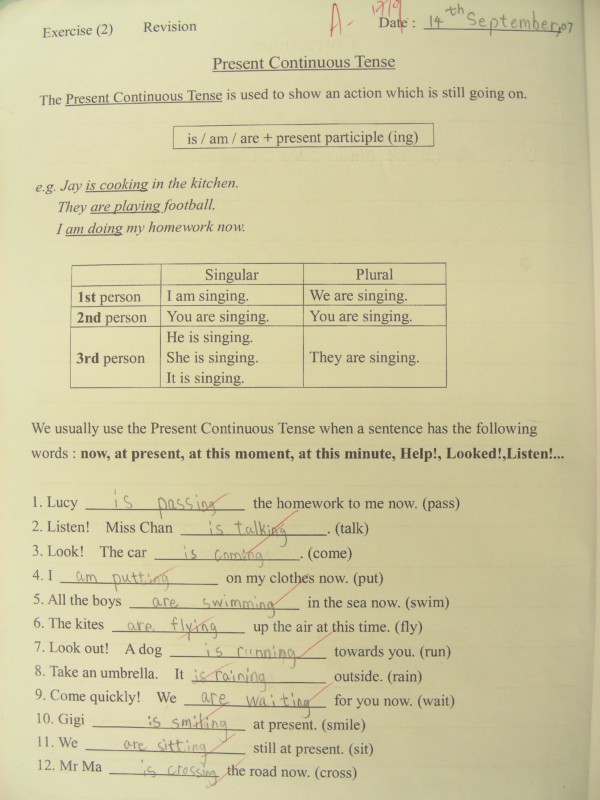 Exercise (2) Revision A- 17/9 Date : 14th September, 07
Present Continuous Tense
The Present Continuous Tense is used to show an action which is still going on.
is / am / are + present participle (ing)
e.g. Jay is cooking in the kitchen.
They are playing football.
I am doing my homework now.
Singular Plural
1st person I am singing. We are singing.
2nd person You are singing. You are singing.
3rd person He is singing. She is singing. It is singing. They are singing.
We usually use the Present Continuous Tense when a sentence has the following
words : now, at present, at this moment, at this minute, Help!, Looked!,Listen!...
1. Lucy is passing the homework to me now. (pass)
2. Listen! Miss Chan is talking. (talk)
3. Look! The car is coming. (come)
4. I am putting on my clothes now. (put)
5. All the boys are swimming in the sea now. (swim)
6. The kites are flying up the air at this time. (fly)
7. Look out! A dog is running towards you. (run)
8. Take an umbrella. It is raining outside. (rain)
9. Come quickly! We are waiting for you now. (wait)
10. Gigi is smiling at present. (smile)
11. We are sitting still at present. (sit)
12. Mr Ma is crossing the road now. (cross)